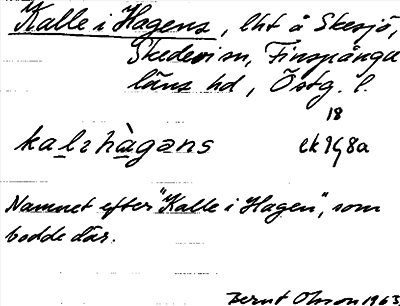 Kalle i Hagens, lht å Skesjö,
Skedevi sn, Finspånga
läns hd, Östg. l.
18
kalɩhàgəns ek 9G8a
Namnet efter "Kalle i Hagen", som
bodde där.
Bernt Olsson 1963